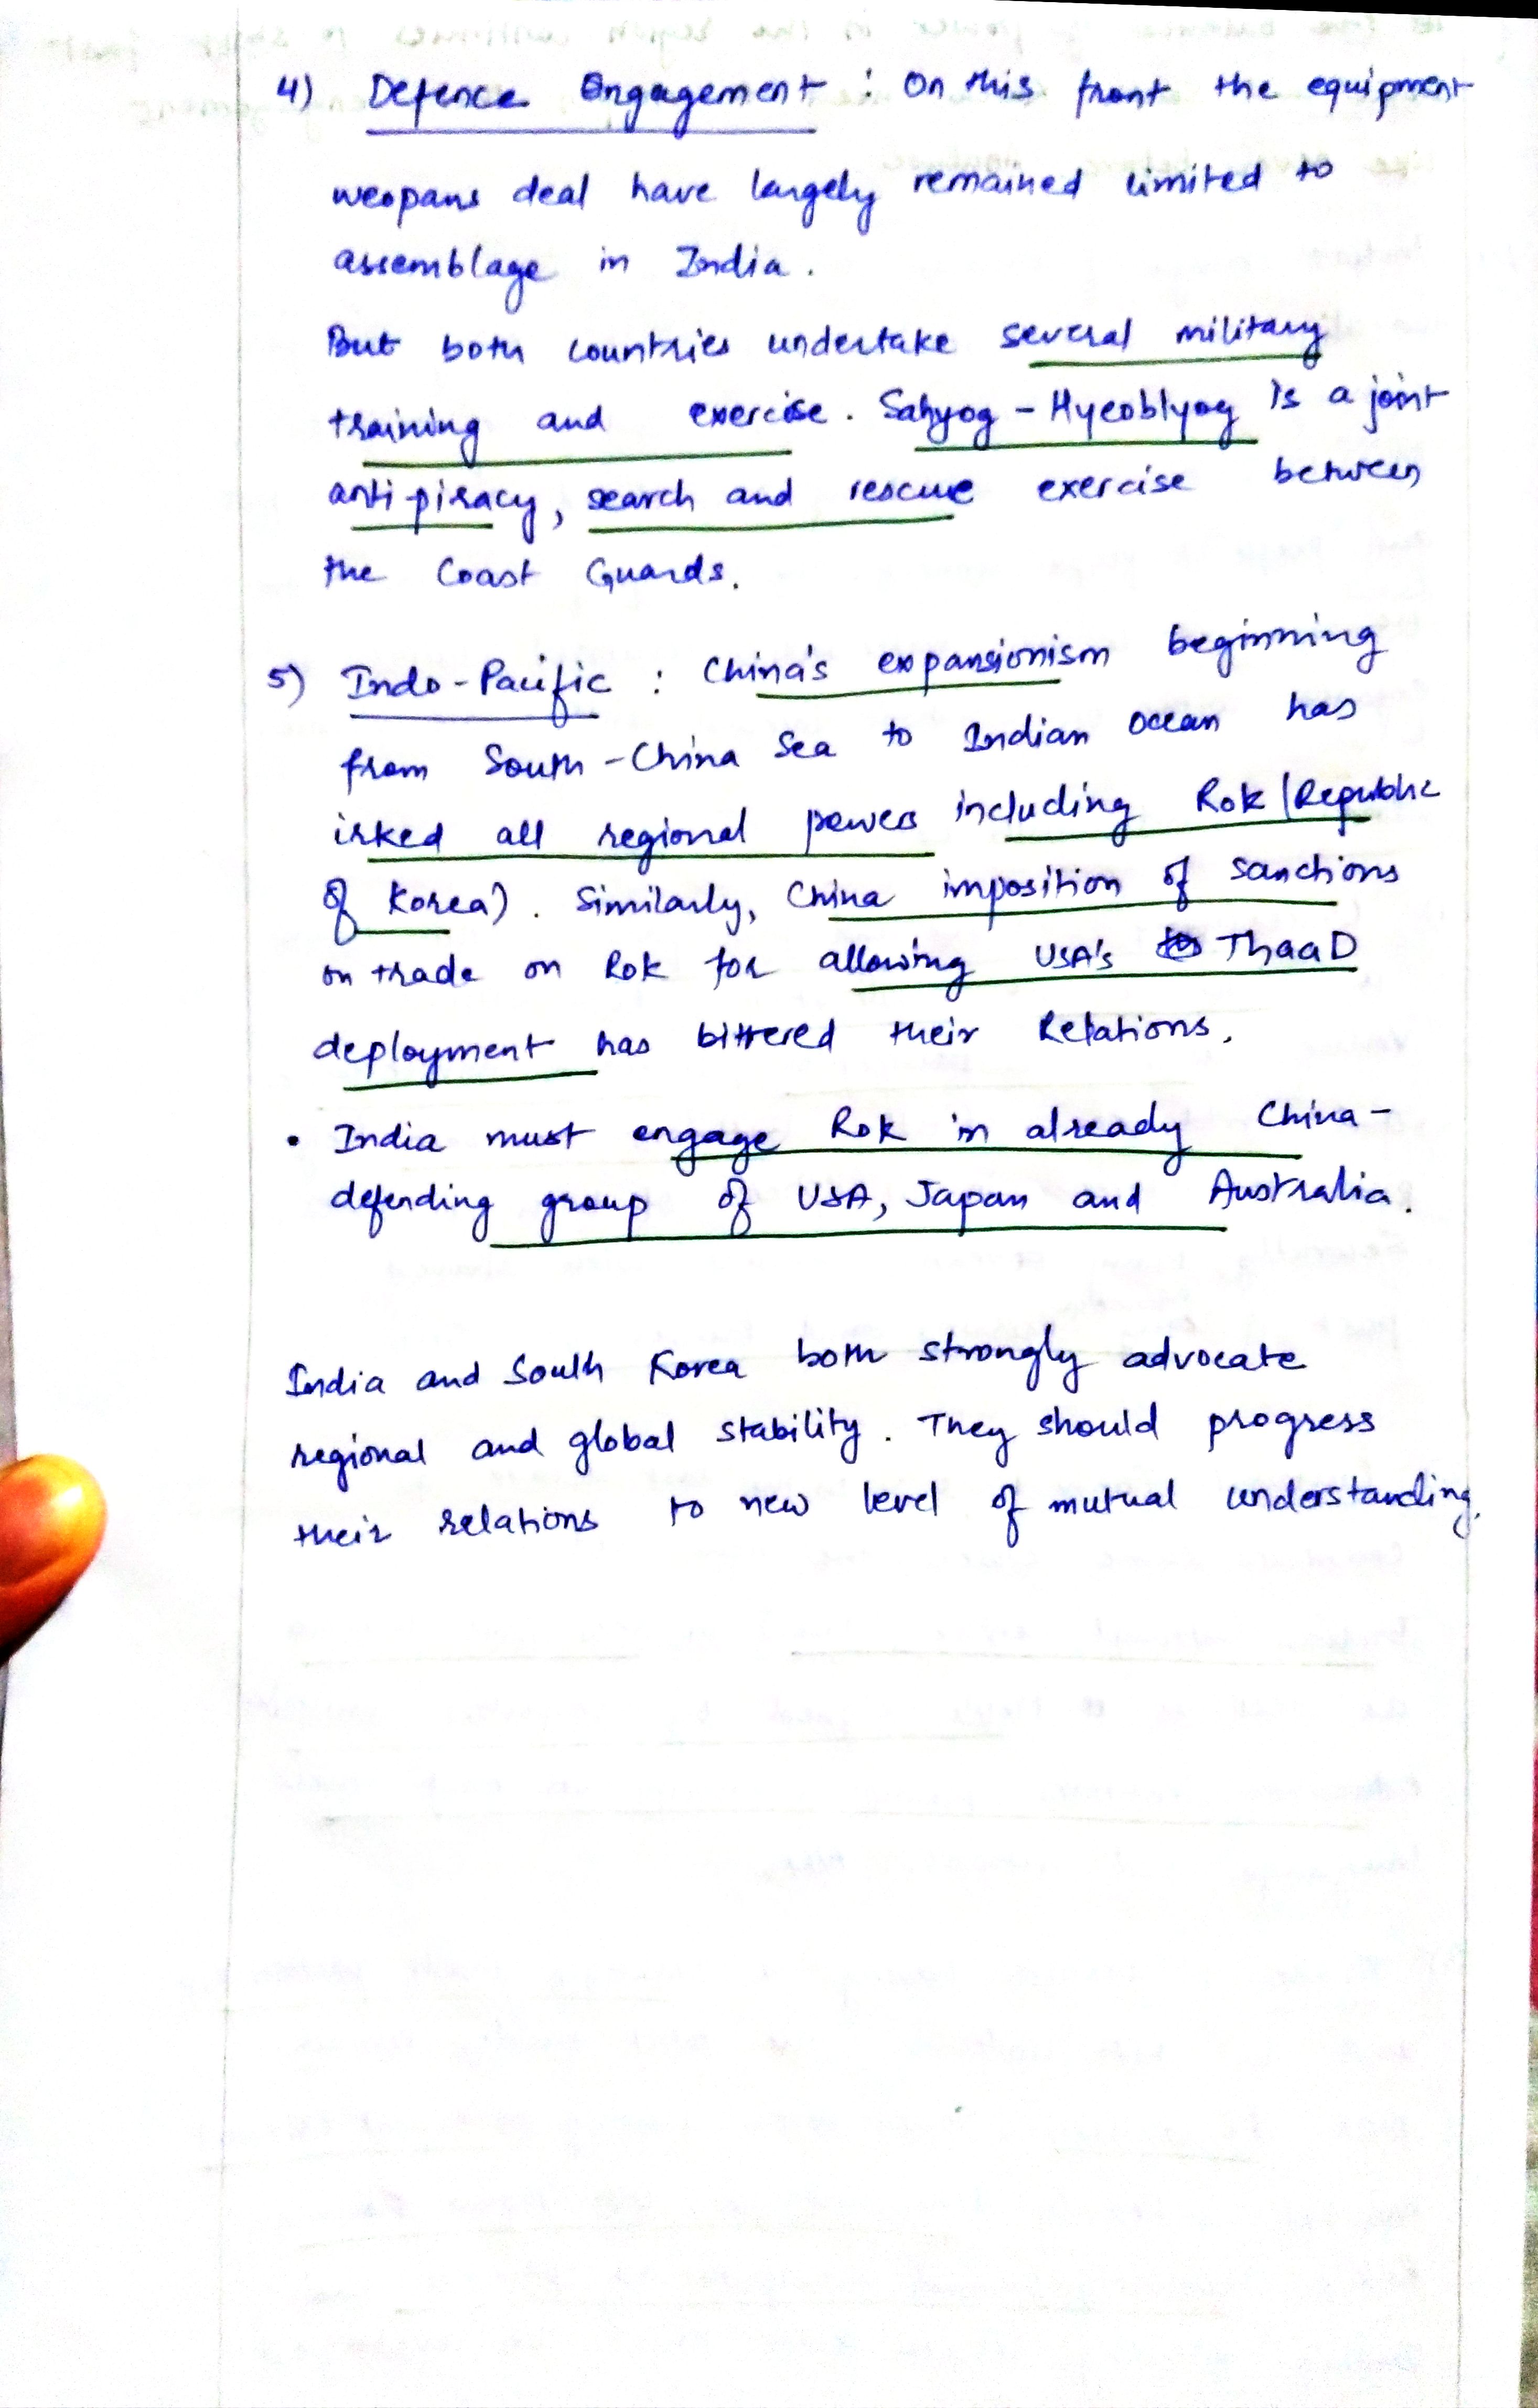 4) Defence Engagement : On this front the equipment
weopans deal have largely remained limited to
assemblage in India.
But both countries undertake several military
training and exercise. Sahyog - Hyeoblyog is a joint
anti piracy, search and rescue exercise between
the Coast Guards.
5) Indo-Pacific : China's expansionism beginning
from South-China Sea to Indian Ocean has
irked all regional powers including RoK (Republic
of Korea). Similarly, China imposition of sanctions
on trade on RoK for allowing USA's ThaaD
deployment has bittered their Relations.
• India must engage RoK in already China-
defending group of USA, Japan and Australia.
India and South Korea both strongly advocate
regional and global stability. They should progress
their relations to new level of mutual understanding.